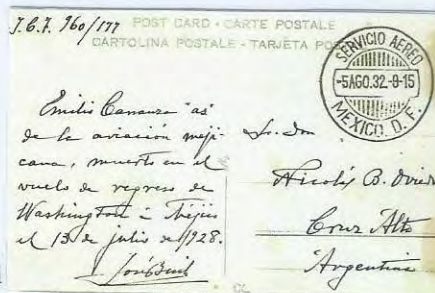 J.C.F. 960/177
POST CARD - CARTE POSTALE
CARTOLINA POSTALE - TARJETA POS
SERVICIO AEREO
-5AGO.32.-8-15
MEXICO. D. F.
Emilio Carranza "as"
de la aviación meji-
cana, muerto en el
vuelo de regreso de
Washington a Méjico
el 13 de julio de 1928.
Sr. Don
Nicolás B.
Cruz Alta
Argentina